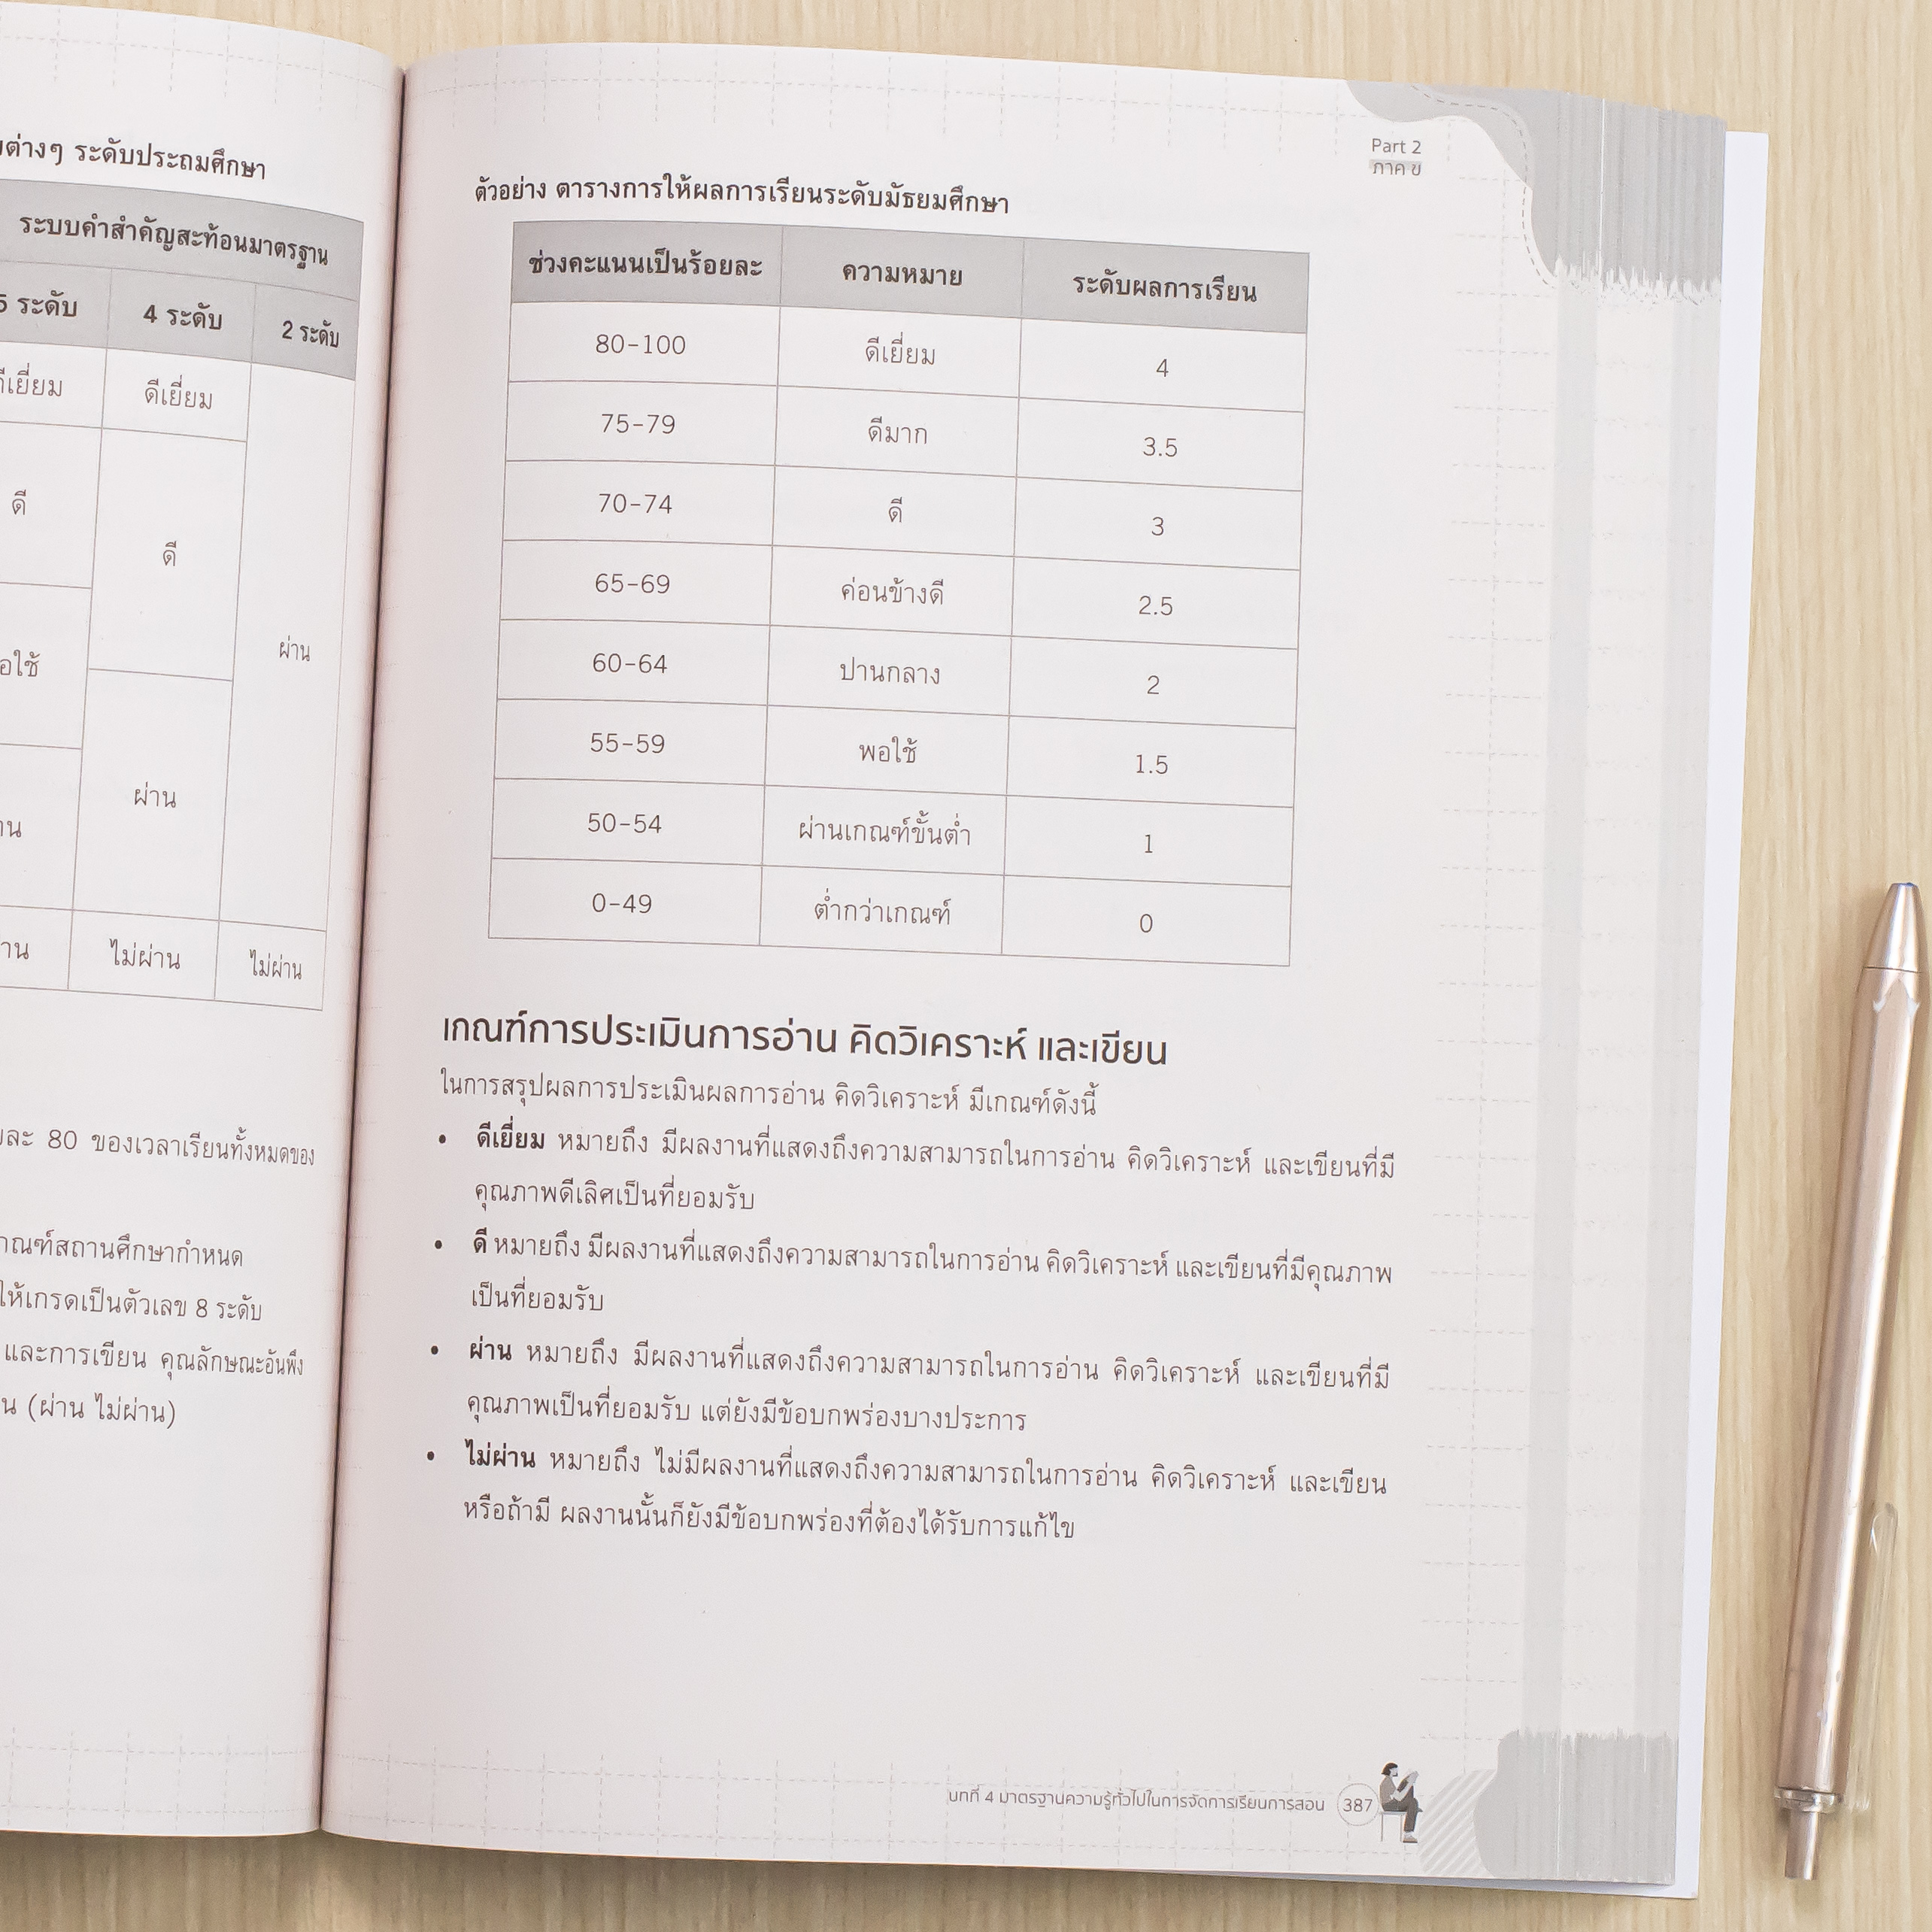 ระดับประถมศึกษา
ระบบคำสำคัญสะท้อนมาตรฐาน
ระดับ 4 ระดับ 2 ระดับ
ดีเยี่ยม
ดี
ดี
ผ่าน
ผ่าน
ไม่ผ่าน ไม่ผ่าน
80 ของเวลาเรียนทั้งหมดของ
ให้เกรดเป็นตัวเลข 8 ระดับ
และการเขียน คุณลักษณะอันพึง
(ผ่าน ไม่ผ่าน)
Part 2
ภาค ข
ตัวอย่าง ตารางการให้ผลการเรียนระดับมัธยมศึกษา
ช่วงคะแนนเป็นร้อยละ ความหมาย ระดับผลการเรียน
80-100 ดีเยี่ยม 4
75-79 ดีมาก 3.5
70-74 ดี 3
65-69 ค่อนข้างดี 2.5
60-64 ปานกลาง 2
55-59 พอใช้ 1.5
50-54 ผ่านเกณฑ์ขั้นต่ำ 1
0-49 ต่ำกว่าเกณฑ์ 0
เกณฑ์การประเมินการอ่าน คิดวิเคราะห์ และเขียน
ในการสรุปผลการประเมินผลการอ่าน คิดวิเคราะห์ มีเกณฑ์ดังนี้
• ดีเยี่ยม หมายถึง มีผลงานที่แสดงถึงความสามารถในการอ่าน คิดวิเคราะห์ และเขียนที่มี
คุณภาพดีเลิศเป็นที่ยอมรับ
• ดี หมายถึง มีผลงานที่แสดงถึงความสามารถในการอ่าน คิดวิเคราะห์ และเขียนที่มีคุณภาพ
เป็นที่ยอมรับ
• ผ่าน หมายถึง มีผลงานที่แสดงถึงความสามารถในการอ่าน คิดวิเคราะห์ และเขียนที่มี
คุณภาพเป็นที่ยอมรับ แต่ยังมีข้อบกพร่องบางประการ
• ไม่ผ่าน หมายถึง ไม่มีผลงานที่แสดงถึงความสามารถในการอ่าน คิดวิเคราะห์ และเขียน
หรือถ้ามี ผลงานนั้นก็ยังมีข้อบกพร่องที่ต้องได้รับการแก้ไข
บทที่ 4 มาตรฐานความรู้ทั่วไปในการจัดการเรียนการสอน 387